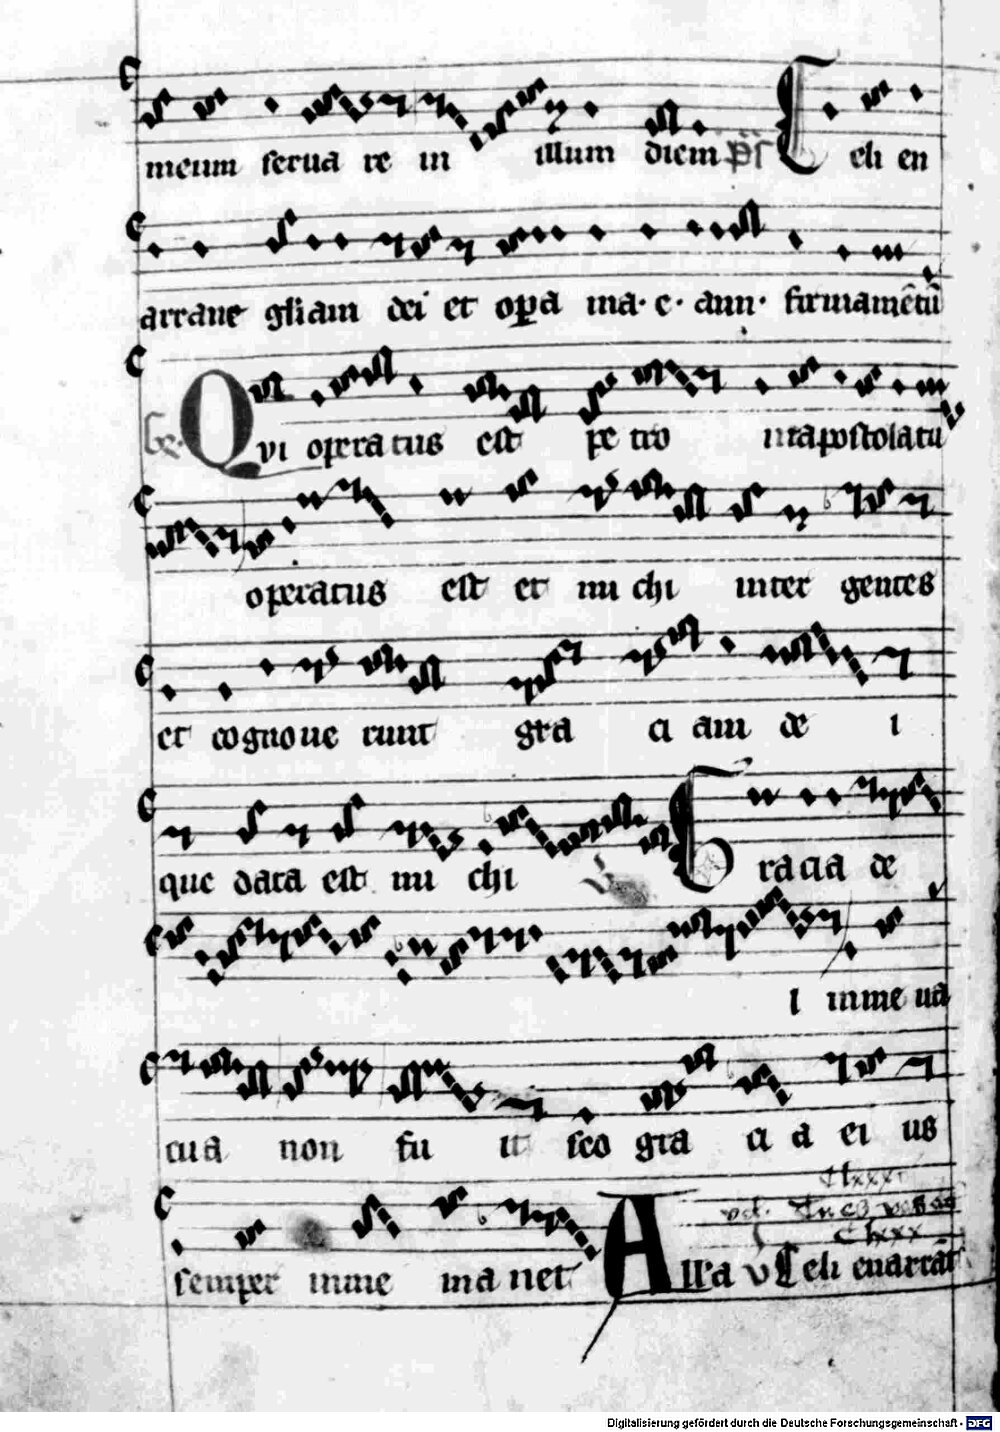 meum serua re in illum diem ps Celi en
arrant gliam dei et opa ma· e· ann· firmamētū
Qvi operatus est pe tro inapostolatu
operatus est et mi chi inter gentes
et cognoue runt gra ci am de i
que data est mi chi v Gracia de
i inme ua
cua non fu it sco gra ci a ei us
clxxxi
vel.
clxxx
semper inme ma net All'a v Celi enarrāt
Digitalisierung gefördert durch die Deutsche Forschungsgemeinschaft - DFG